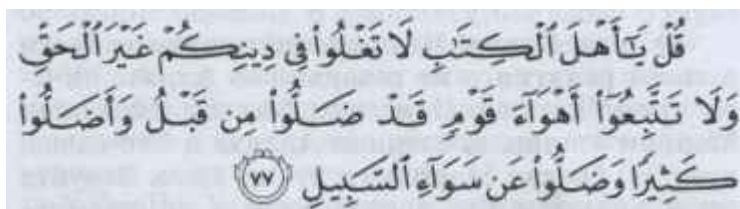 قُلْ يَـٰٓأَهْلَ ٱلْكِتَـٰبِ لَا تَغْلُوا۟ فِى دِينِكُمْ غَيْرَ ٱلْحَقِّ
وَلَا تَتَّبِعُوٓا۟ أَهْوَآءَ قَوْمٍ قَدْ ضَلُّوا۟ مِن قَبْلُ وَأَضَلُّوا۟
كَثِيرًا وَضَلُّوا۟ عَن سَوَآءِ ٱلسَّبِيلِ ٧٧